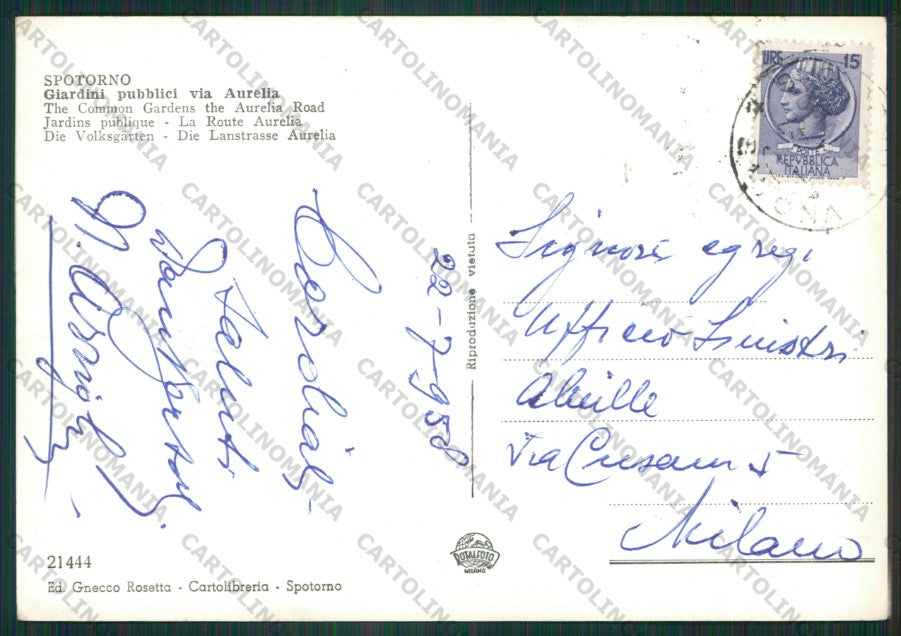 SPOTORNO
Giardini pubblici via Aurelia
The Common Gardens the Aurelia Road
Jardins publique - La Route Aurelia
Die Volksgärten - Die Lanstrasse Aurelia
LIRE 15
POSTE
REPVBBLICA
ITALIANA
22-7-958
Cordiali
saluti
Signori egregi
Ufficio Sinistri
Via Cusani 5
Milano
Riproduzione vietuta
ROTALFOTO
MILANO
21444
Ed. Gnecco Rosetta - Cartolibreria - Spotorno
CARTOLINOMANIA